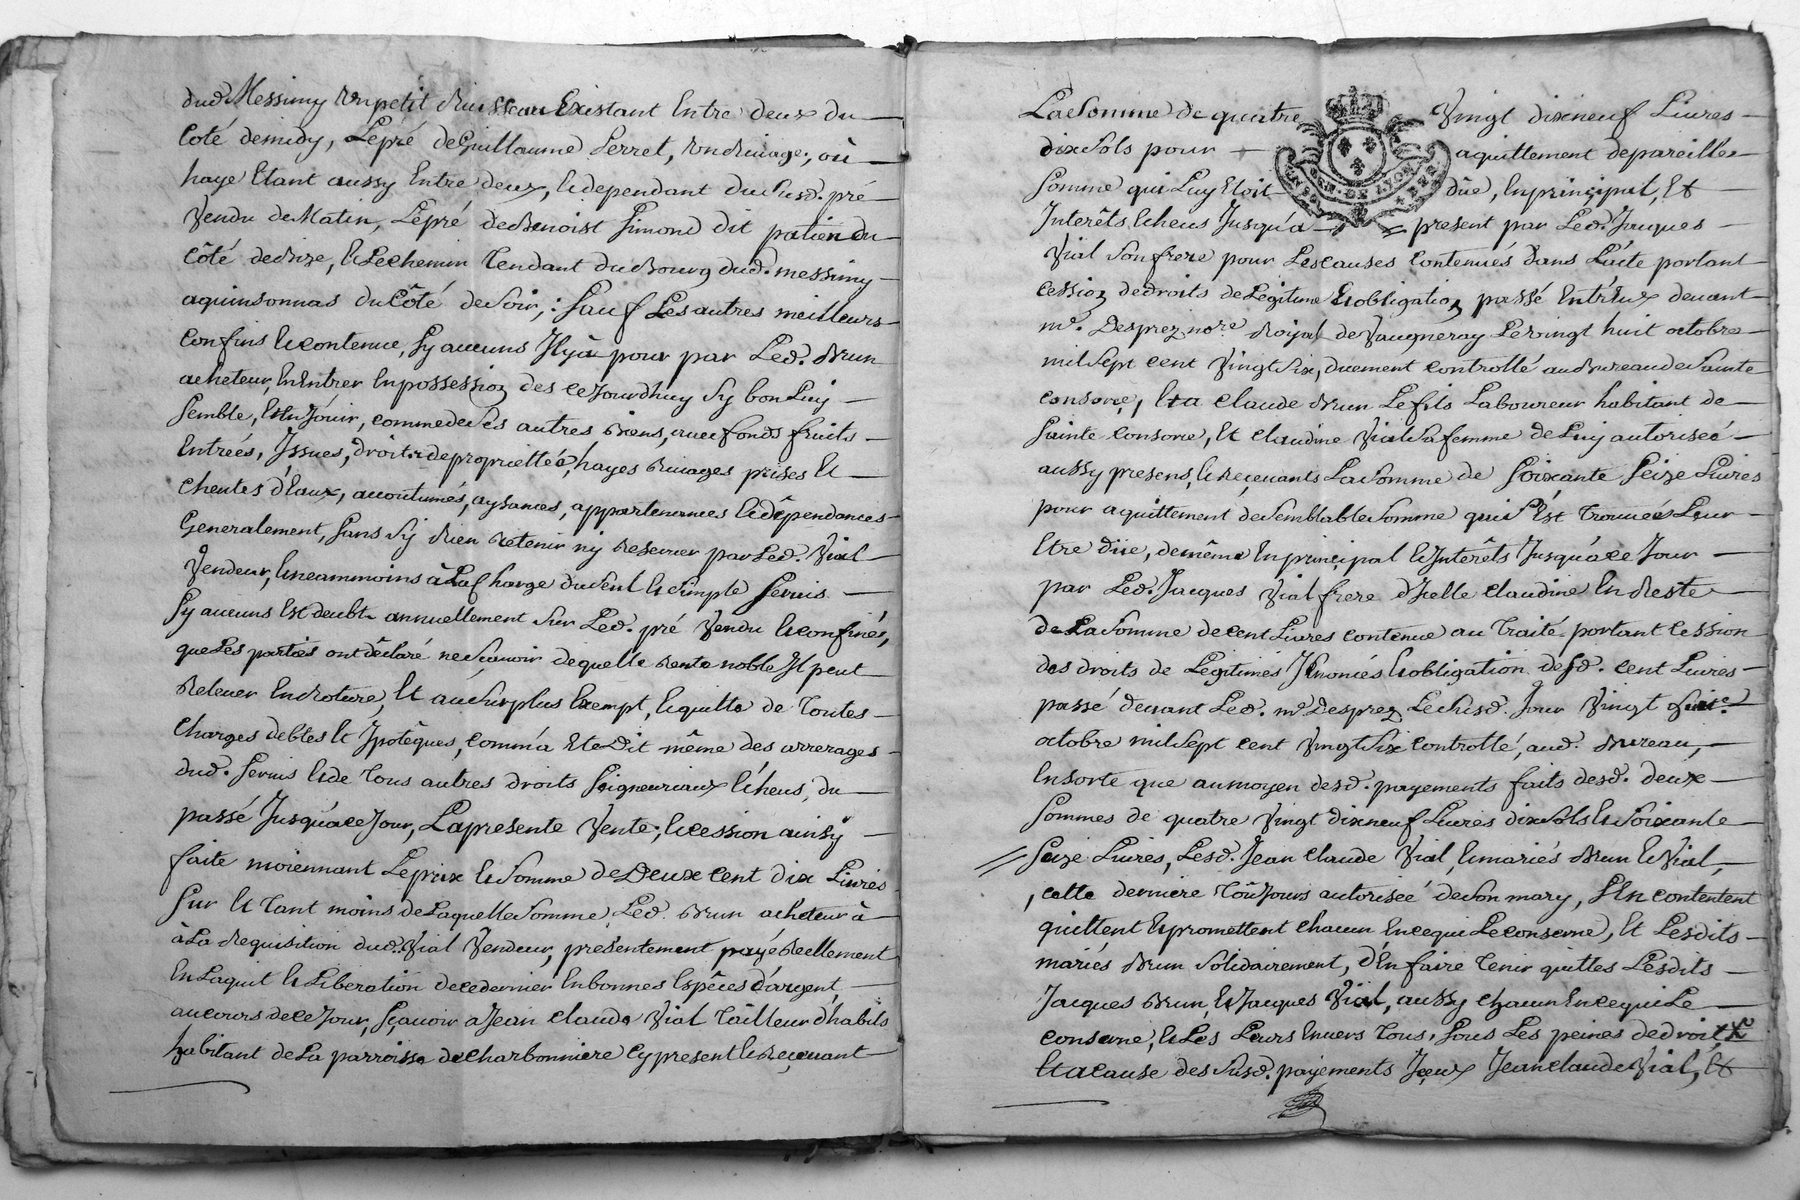 dud. Messimy un petit Ruisseau Existant Entre deux du
Coté demidy, Le pré de Guillaume Perret, un Rivage, où
haye Etant aussy Entre deux, & dependant du susd. pré
Vendu de Matin, Le pré de Benoist Simond dit patien du
côté de Bize, & Le chemin Tendant du Bourg dud. messimy
aquinsonnas du Côté de Soir; Sauf Les autres meilleurs
Confins & contenue, sy aucuns Il y à pour par Led. Brun
acheteur, En Entrer En possession des ce Jourdhuy sy bon Luy
Semble, & En Jouir, comme de ses autres Biens, avec fonds fruits
Entrées, Issues, droits de proprietté, hayes Rivages prises &
cheutes d'Eaux, accoutumés, aysances, appartenances & dépendances
Generalement, sans s'y Rien Retenir ny Reserver par Led. Vial
Vendeur, & neammoins à La Charge du seul & simple servis
sy aucuns Est deubt annuellement sur Led. pré vendu & confinés,
que Les parties ont déclaré ne sçavoir de quelle Rente noble Il peut
Relever En Roture, & au surplus Exempt, & quitte de Toutes
Charges debtes & Ipotêques, comm'a Eté Dit même des arrerages
dud. servis & de tous autres droits seigneuriaux Echeus, du
passé Jusqu'à ce Jour, La presente Vente, & cession ainsy
faite moiennant Le prix & somme de Deux cent dix Livres
sur & tant moins de Laquelle somme, Led. Brun acheteur à
à La Requisition dud. Vial Vendeur, présentement payé Reellement
En Laquit & Liberation de ce dernier En bonnes Espêces d'argent
au cours de ce Jour, sçavoir à Jean Claude Vial Tailleur d'habits
habitant de La parroisse de Charbonniere cy present & Reçevant
La somme de quatre Vingt dixneuf Livres
dix sols pour aquittement de pareille
somme qui Luy Etoit dûe, En principal, &
Interêts Echeus Jusqu'a present par Led. Jacques
Vial son frere pour Les causes contenues dans L'acte portant
cession de droits de Legitime & obligation passé Entr'Eux devant
me. Desprez nore Roijal de Vaugneray Le vingt huit octobre
mil sept cent Vingt six, duement controllé au Bureau de Sainte
consorce, & a Claude Brun Le fils Laboureur habitant de
Sainte Consorce, & Claudine Vial sa femme de Luy autorisée
aussy presens, & Reçevants La somme de soixante seize Livres
pour aquittement de semblable somme qui s'Est trouvée Leur
Etre dûe, de même En principal & Interêts Jusqu'a ce Jour
par Led. Jacques Vial frere d'Icelle Claudine En Reste
de La somme de cent Livres contenue au Traité portant cession
des droits de Légitimes & obligation desd. cent Livres
passé devant Led. me. Desprez Le susd. Jour Vingt huit
octobre mil sept cent vingt six controllé, aud. Bureau,
Ensorte que au moyen desd. payements faits desd. deux
sommes de quatre Vingt dixneuf Livres dix sols & soixante
seize Livres, Lesd. Jean Claude Vial, & mariés Brun & Vial,
, cette derniere Toujours autorisée de son mary, s'En contentent
quittent & promettent chacun En ce qui Le conserne, & Lesdits
mariés Brun solidairement, d'En faire Tenir quittes Lesdits
Jacques Brun, & Jacques Vial, aussy chacun En ce qui Le
conserne, & Les Leurs Envers tous, sous Les peines de droit,
& a cause des susd. payements Iceux Jean Claude Vial, &
GEN. DE LYON